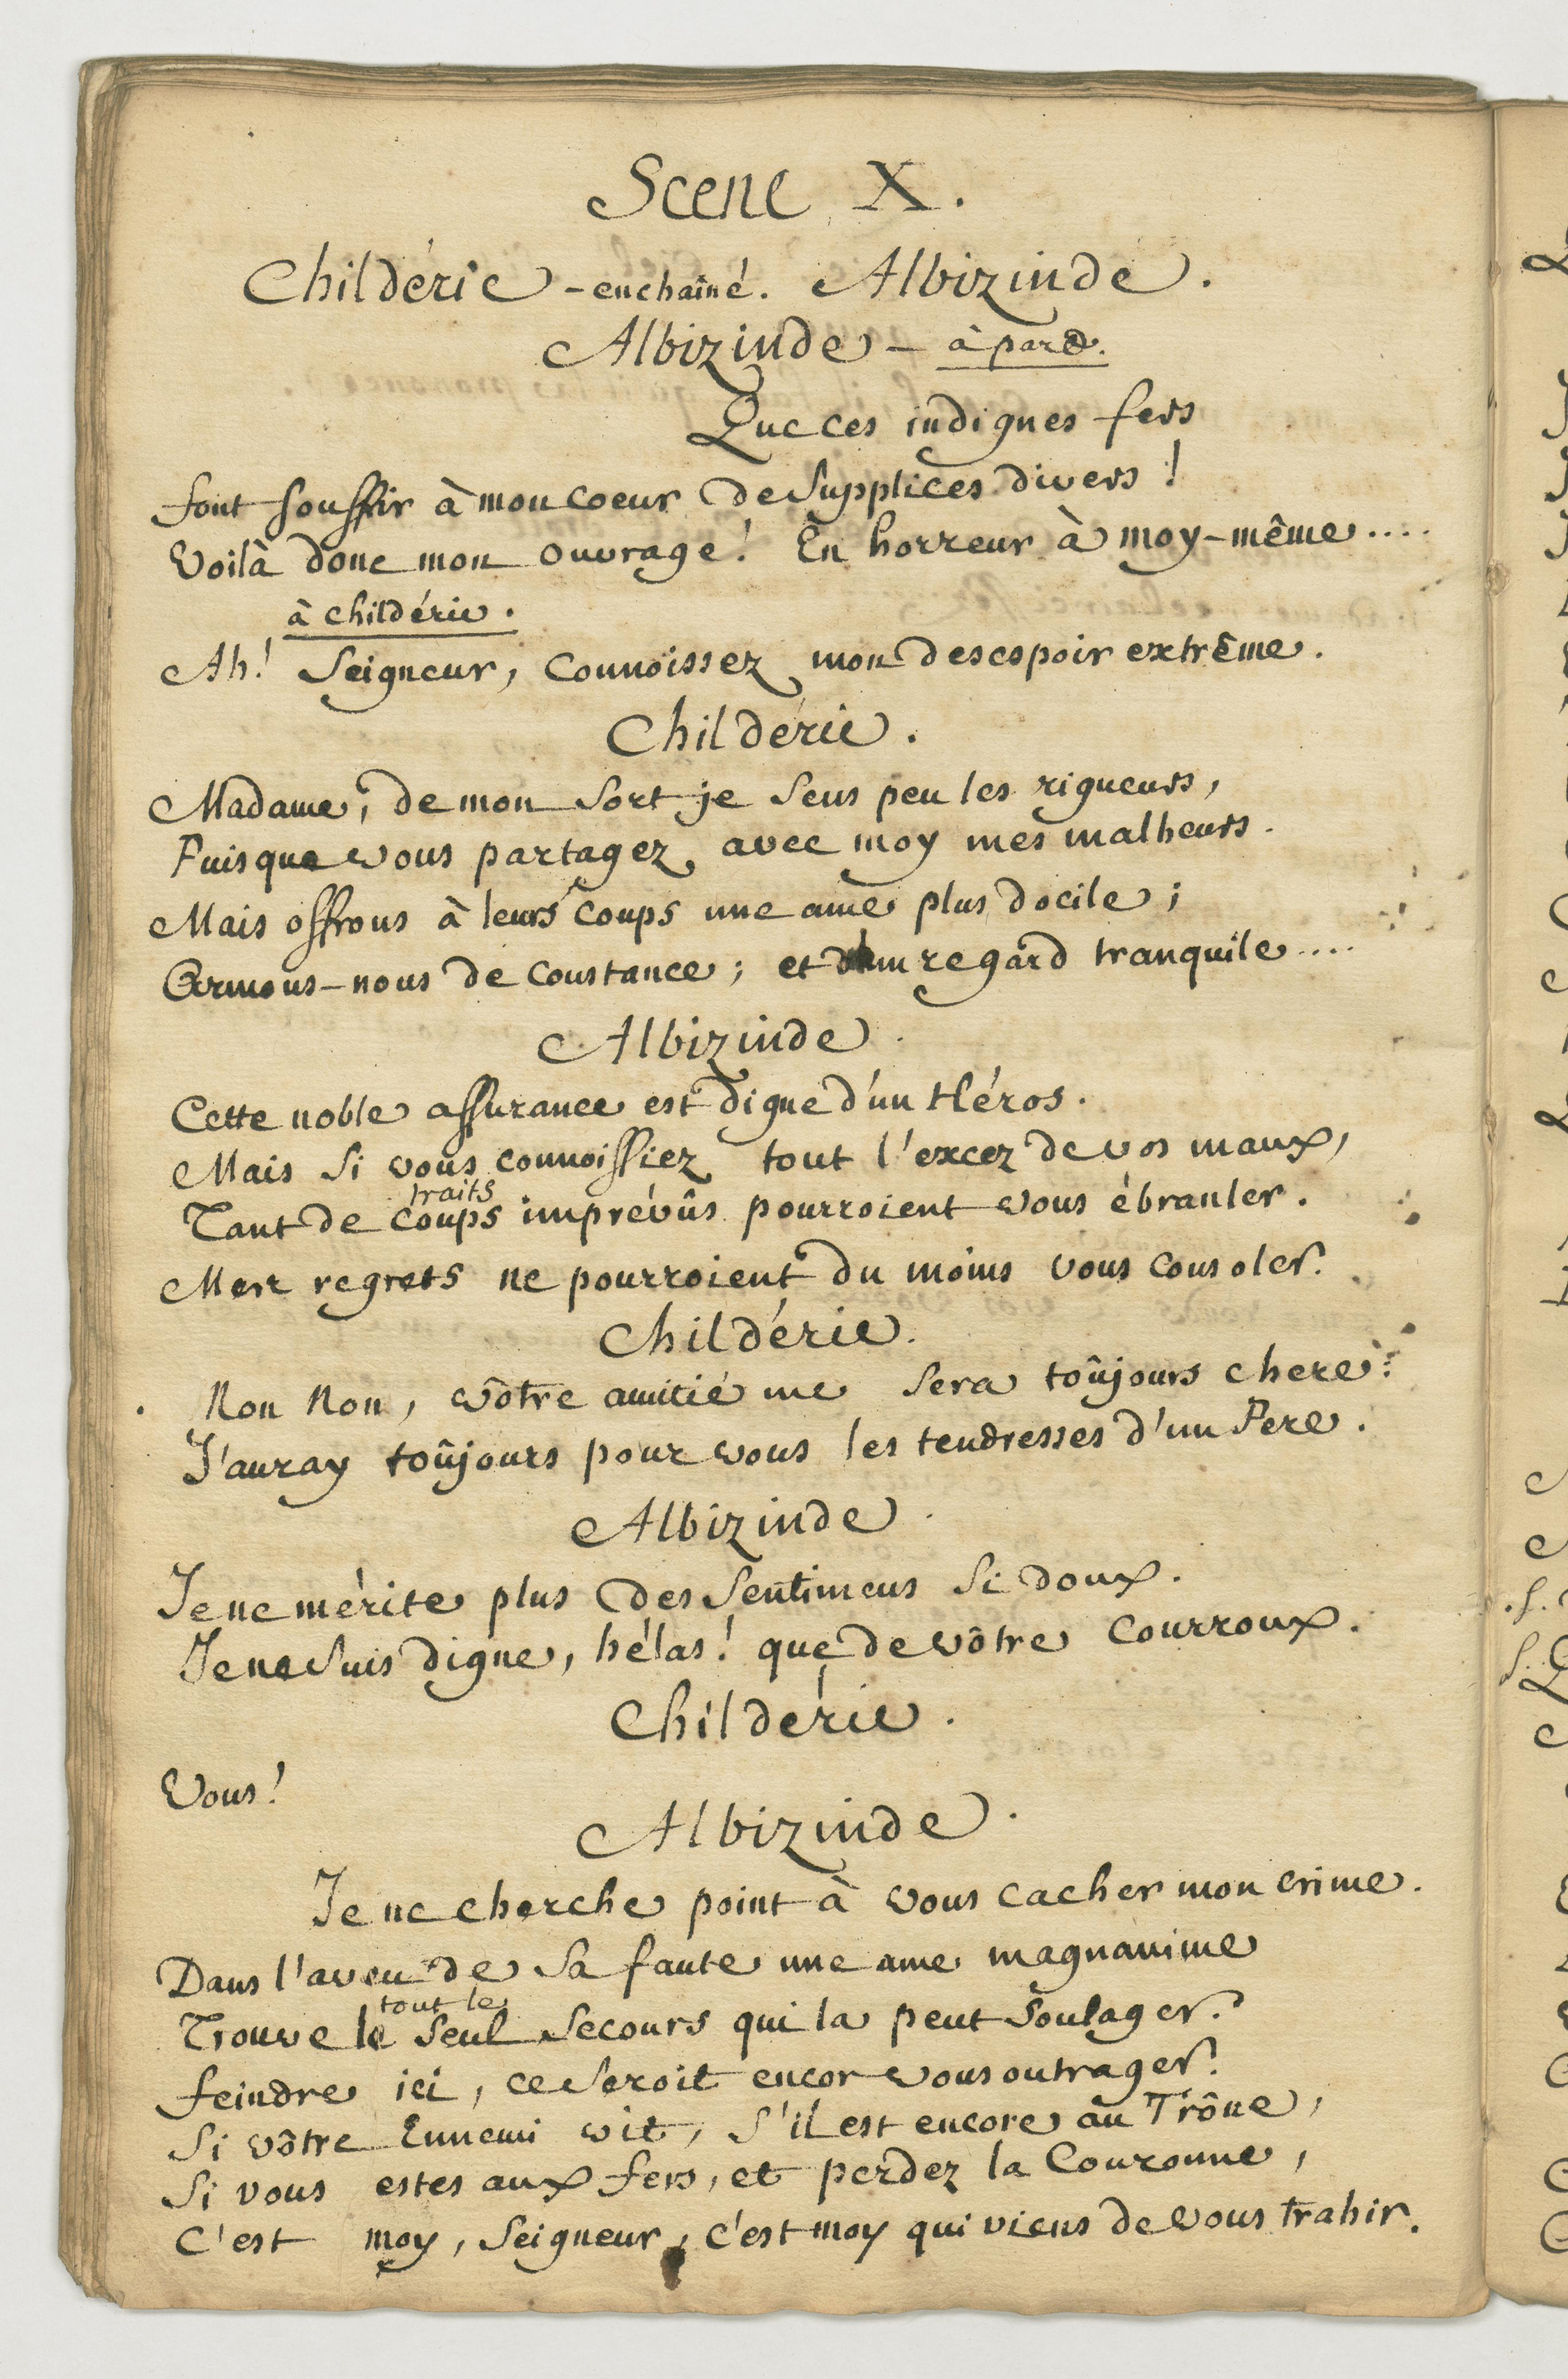 Scene X.
Childéric - enchaîné. Albizinde.
Albizinde - à part.
Que ces indignes fers
font souffrir à mon coeur de supplices divers!
Voilà donc mon ouvrage! En horreur à moy-même....
à childéric.
Ah! Seigneur, connoissez mon desespoir extrême.
Childéric.
Madame, de mon sort je sens peu les rigueurs,
Puisque vous partagez avec moy mes malheurs.
Mais offrons à leurs coups une ame plus docile;
Armons-nous de constance; et d'un regard tranquile....
Albizinde.
Cette noble assurance est digne d'un Héros.
Mais si vous connoissiez tout l'excez de vos maux,
traits
Tant de coups imprévûs pourroient vous ébranler.
Mes regrets ne pourroient du moins vous consoler.
Childéric.
Non Non, vôtre amitié me sera toûjours chere:
J'auray toûjours pour vous les tendresses d'un Pere.
Albizinde.
Je ne mérite plus des sentimens si doux.
Je ne suis digne, hélas! que de vôtre courroux.
Childéric.
Vous!
Albizinde.
Je ne cherche point à vous cacher mon crime.
Dans l'aveu de sa faute une ame magnanime
tout le
Trouve le seul secours qui la peut soulager.
feindre ici, ce seroit encor vous outrager.
Si vôtre Ennemi vit, s'il est encore au Trône,
Si vous estes aux fers, et perdez la Couronne,
C'est moy, Seigneur, c'est moy qui viens de vous trahir.